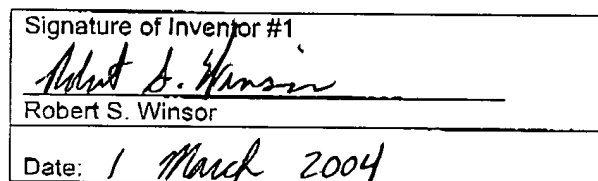 Signature of Inventor #1
Robert S. Winsor
Robert S. Winsor
Date: 1 March 2004